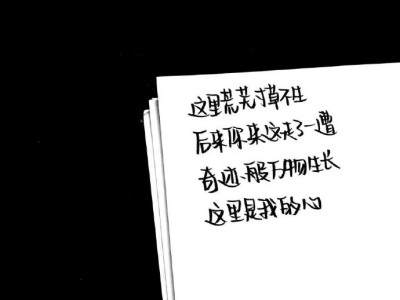 这里荒芜寸草不生
后来你来这走了一遭
奇迹般万物生长
这里是我的心